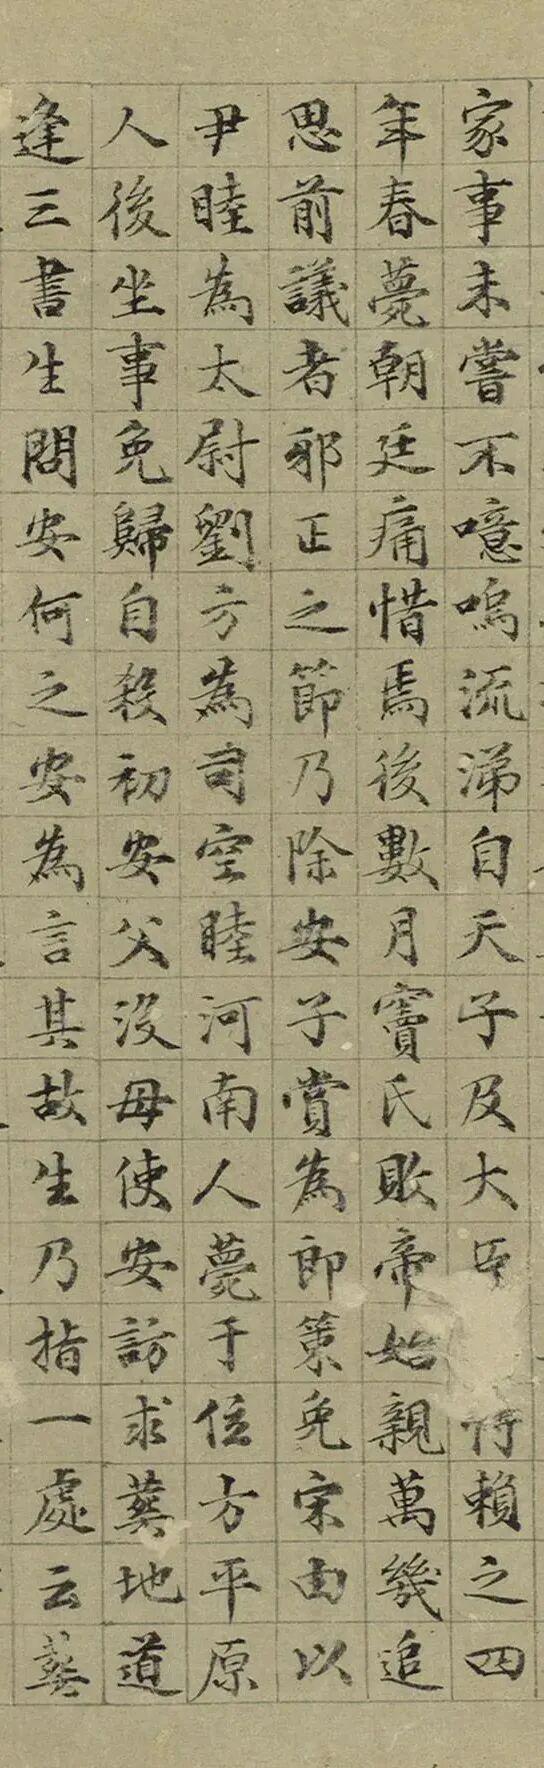 家事未嘗不噫嗚流涕自天子及大臣恃賴之四
年春薨朝廷痛惜焉後數月竇氏敗帝始親萬幾追
思前議者邪正之節乃除安子賞為郎策免宋由以
尹睦為太尉劉方為司空睦河南人薨于位方平原
人後坐事免歸自殺初安父沒母使安訪求葬地道
逢三書生問安何之安為言其故生乃指一處云葬